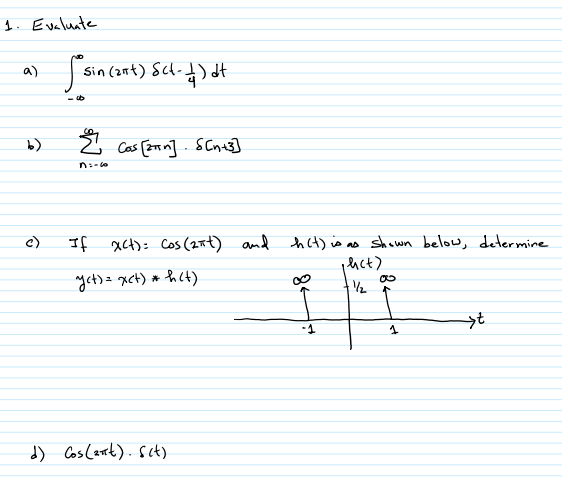 1. Evaluate
a) ∫_{-∞}^{∞} sin(2πt) δ(t-1/4) dt
b) ∑_{n=-∞}^{∞} Cos[2πn] · δ[n+3]
c) If x(t)= Cos(2πt) and h(t) is as shown below, determine
y(t)= x(t) * h(t)
h(t)
∞ 1/2 ∞
-1 1 t
d) Cos(2πt) · δ(t)